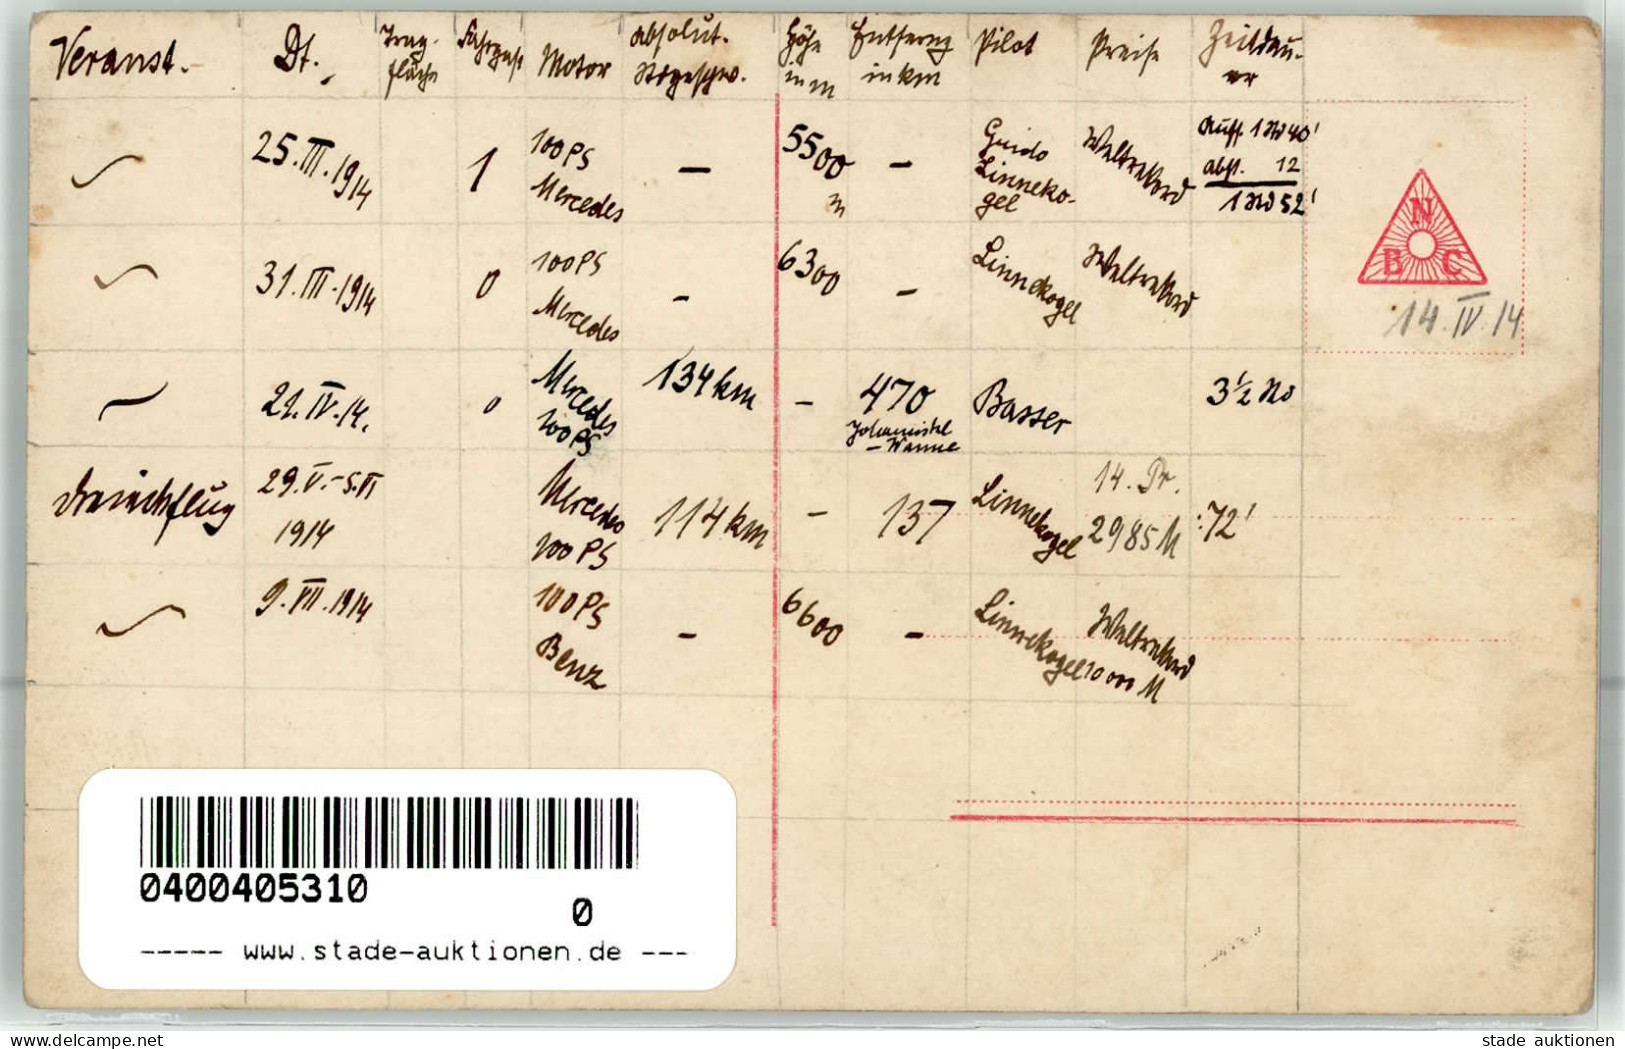 Veranst. Dt. Trag- fläche Fahrgast Motor Absolut. Stdgeschw. Höhe in m Entferng in km Pilot Preise Zeitdau- er
25.III.1914 1 100 PS Mercedes – 5500 m – Guido Linneko- gel Weltrekord Aufst. 1 Std 40' Abst. 12 1 Std 52'
31.III.1914 0 100 PS Mercedes – 6300 – Linnekogel Weltrekord
21.IV.14. 0 Mercedes 100 PS 134 km – 470 Johannisthal – Wanne Basser 3½ Std
Dreieckflug 29.V.–5.VI 1914 Mercedes 100 PS 114 km – 137 Linnekogel 14. Pr. 2985 M :72'
9.VII.1914 100 PS Benz – 6600 – Linnekogel Weltrekord 10 000 M
N
B C
14.IV.14
0400405310
0
----- www.stade-auktionen.de ---
www.delcampe.net
stade auktionen